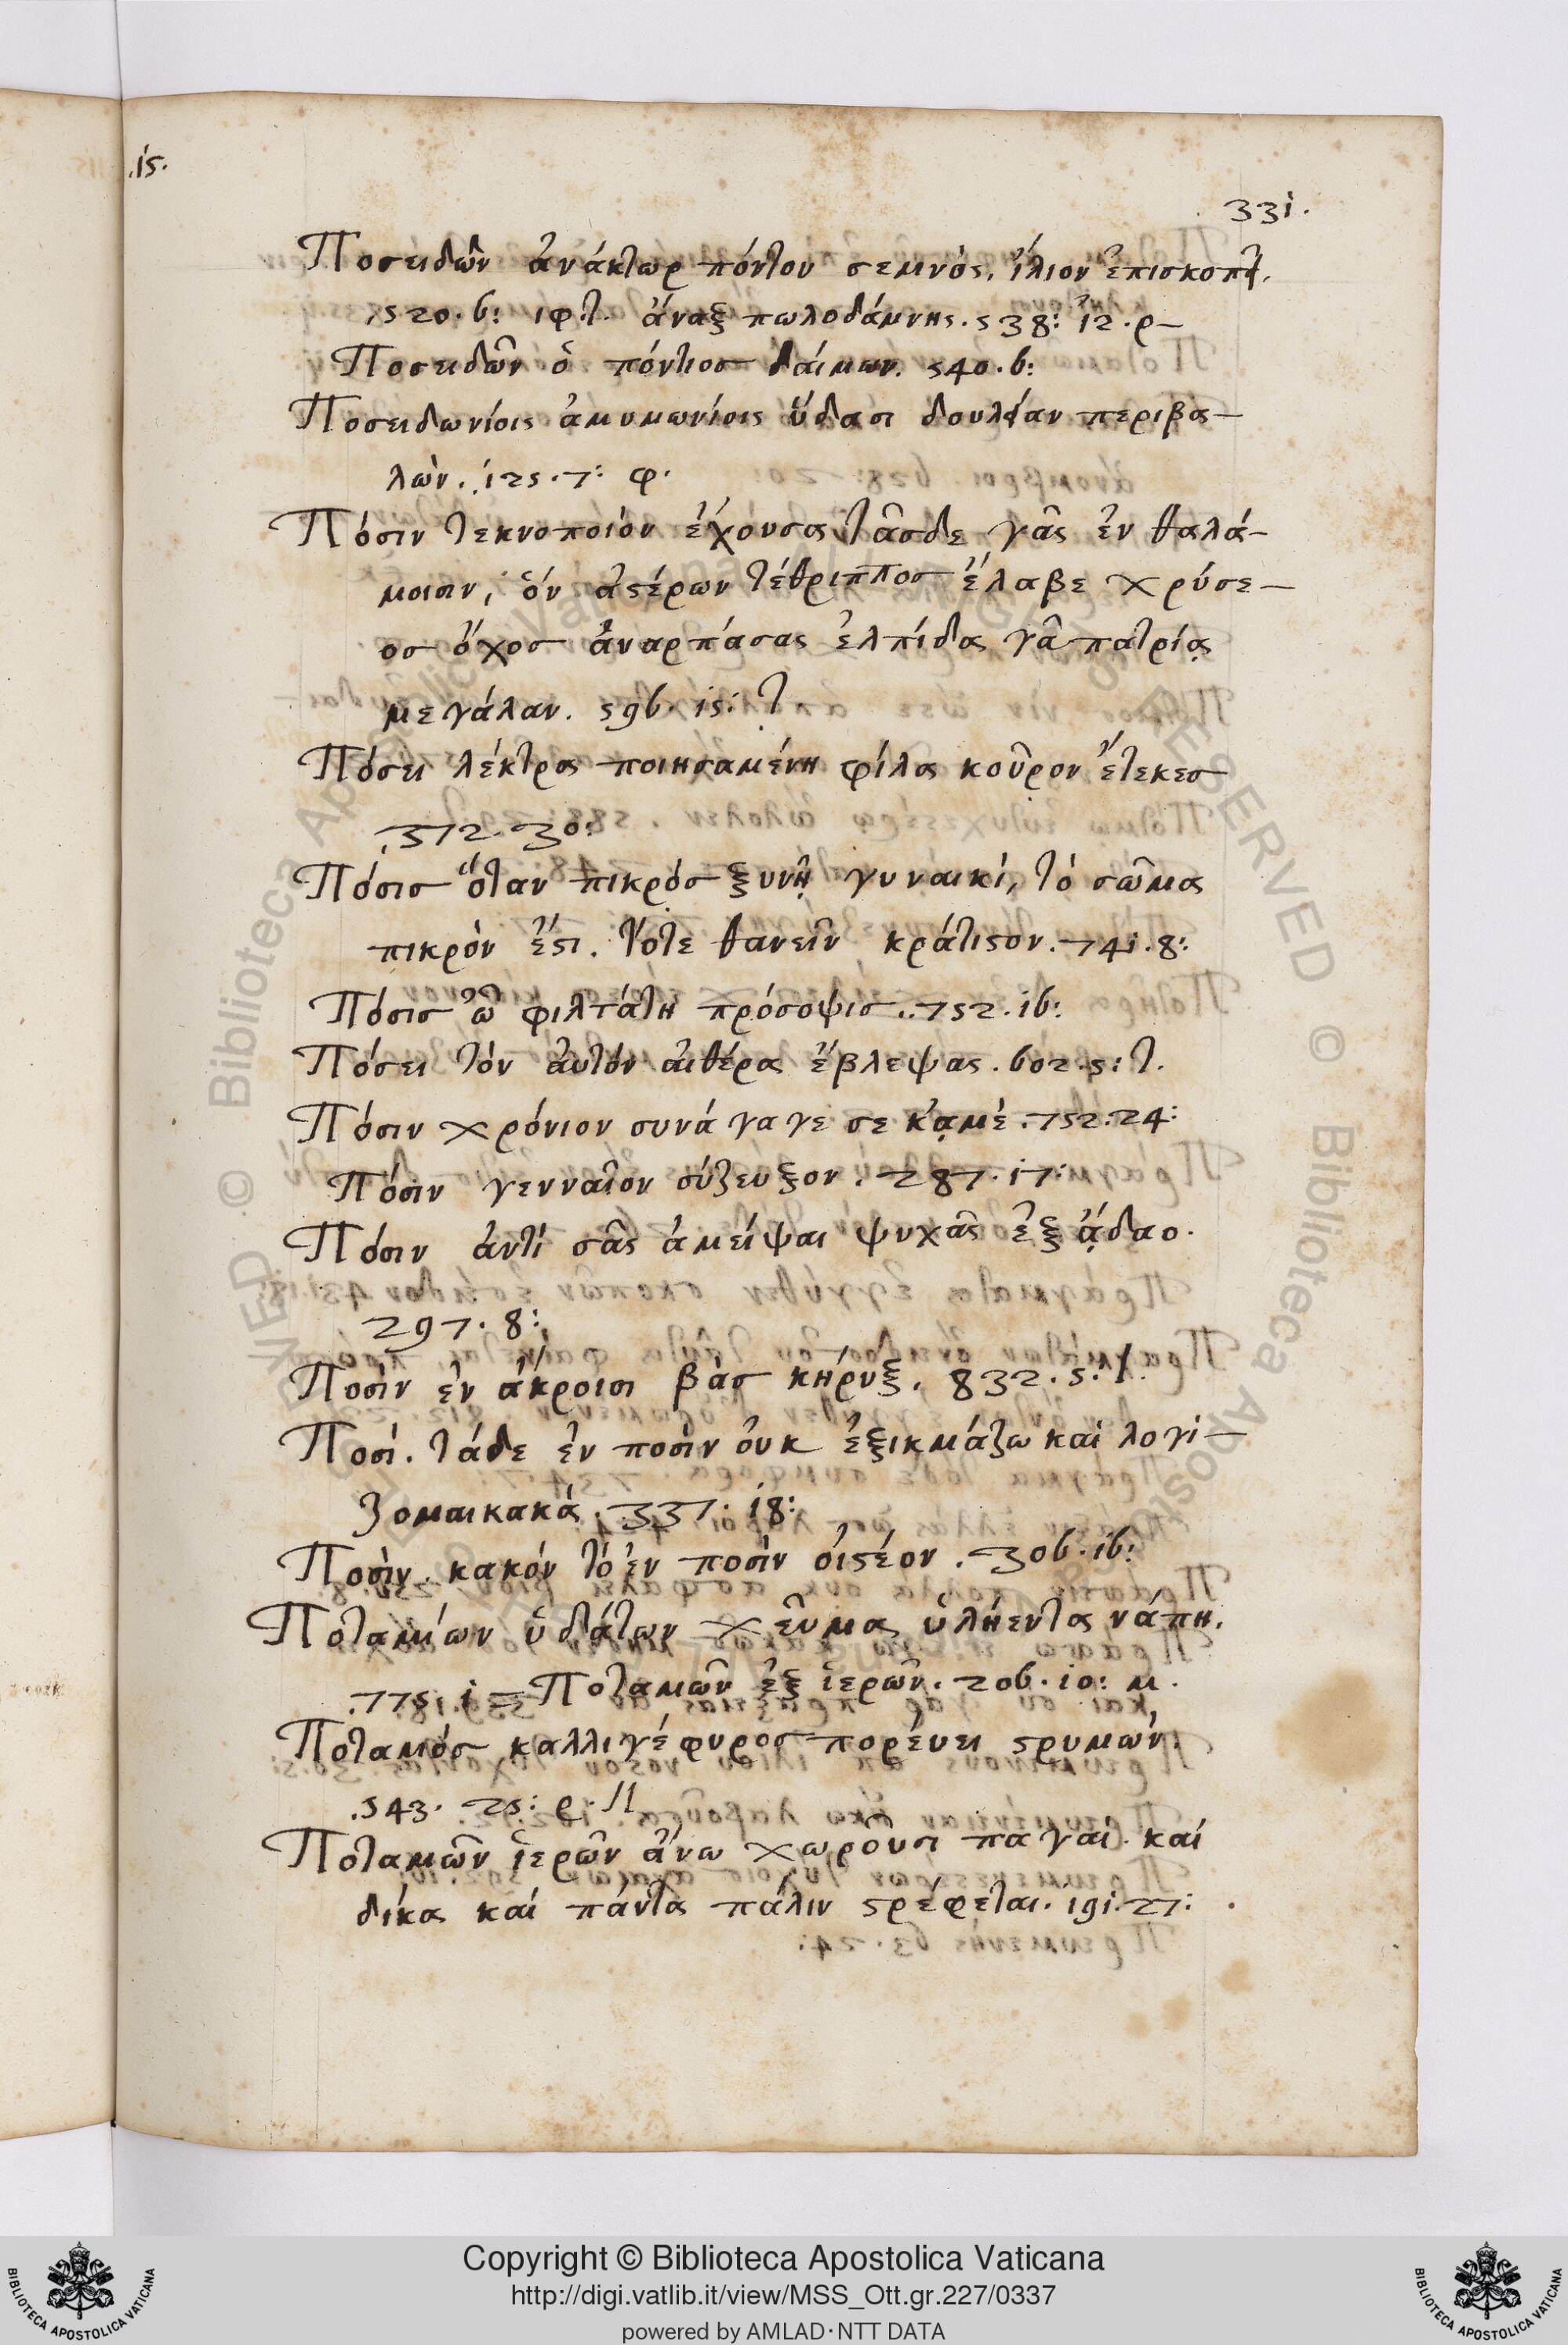 .is.
331.
Ποσειδῶν ἀνάκτωρ πόντου σεμνὸς, ἴλιον ἐπισκοπεῖ.
520.6: ιφ.τ. ἄναξ πωλοδάμνης. 538: 12.ρ-
Ποσειδῶν ὁ πόντιος δαίμων. 540.6:
Ποσειδωνίοις ἀμυμωνίοις ὕδασι δουλείαν περιβα-
λὼν. 125.7: φ.
Πόσιν τεκνοποιὸν ἔχουσα τᾶσδε γᾶς ἐν θαλά-
μοισιν, ὃν ἀστέρων τέθριππος ἔλαβε χρύσε-
ος ὄχος ἀναρπάσας ἐλπίδα γᾶ πατρίᾳ
μεγάλαν. 596. 15: τ
Πόσει λέκτρα ποιησαμένη φίλα κοῦρον ἔτεκες
372. 30:
Πόσις ὅταν πικρὸς ξυνῇ γυναικί, τὸ σῶμα
πικρὸν ἔστι. τότε θανεῖν κράτιστον. 741.8:
Πόσις ὦ φιλτάτη πρόσοψις.. 752.16:
Πόσει τὸν αὐτὸν αἰθέρα ἔβλεψας. 602.5: τ.
Πόσιν χρόνιον συνάγαγε σε κᾀμὲ. 752.24:
Πόσιν γενναῖον σύζευξον. 287.17:
Πόσιν ἀντὶ σᾶς ἀμεῖψαι ψυχᾶς ἐξ ᾅδαο.
297. 8:
Ποσὶν ἐν ἄκροισι βὰς κήρυξ. 832.5: τ.
Ποσὶ. τάδε ἐν ποσὶν οὐκ ἐξικμάζω καὶ λογί-
ζομαι κακά. 337. 18:
Ποσὶν. κακὸν τὸ ἐν ποσὶν οἰστέον. 306.16:
Ποταμίων ὑδάτων χεῦμα ὑλήεντα νάπη.
775. 1 = Ποταμῶν ἐξ ἱερῶν. 206.10: μ.
Ποταμὸς καλλιγέφυρος πορεύει στρυμών.
543. 25: ρ.
Ποταμῶν ἱερῶν ἄνω χωροῦσι παγαί. καὶ
δίκα καὶ πάντα πάλιν στρέφεται. 191.27:
Copyright © Biblioteca Apostolica Vaticana
http://digi.vatlib.it/view/MSS_Ott.gr.227/0337
powered by AMLAD·NTT DATA